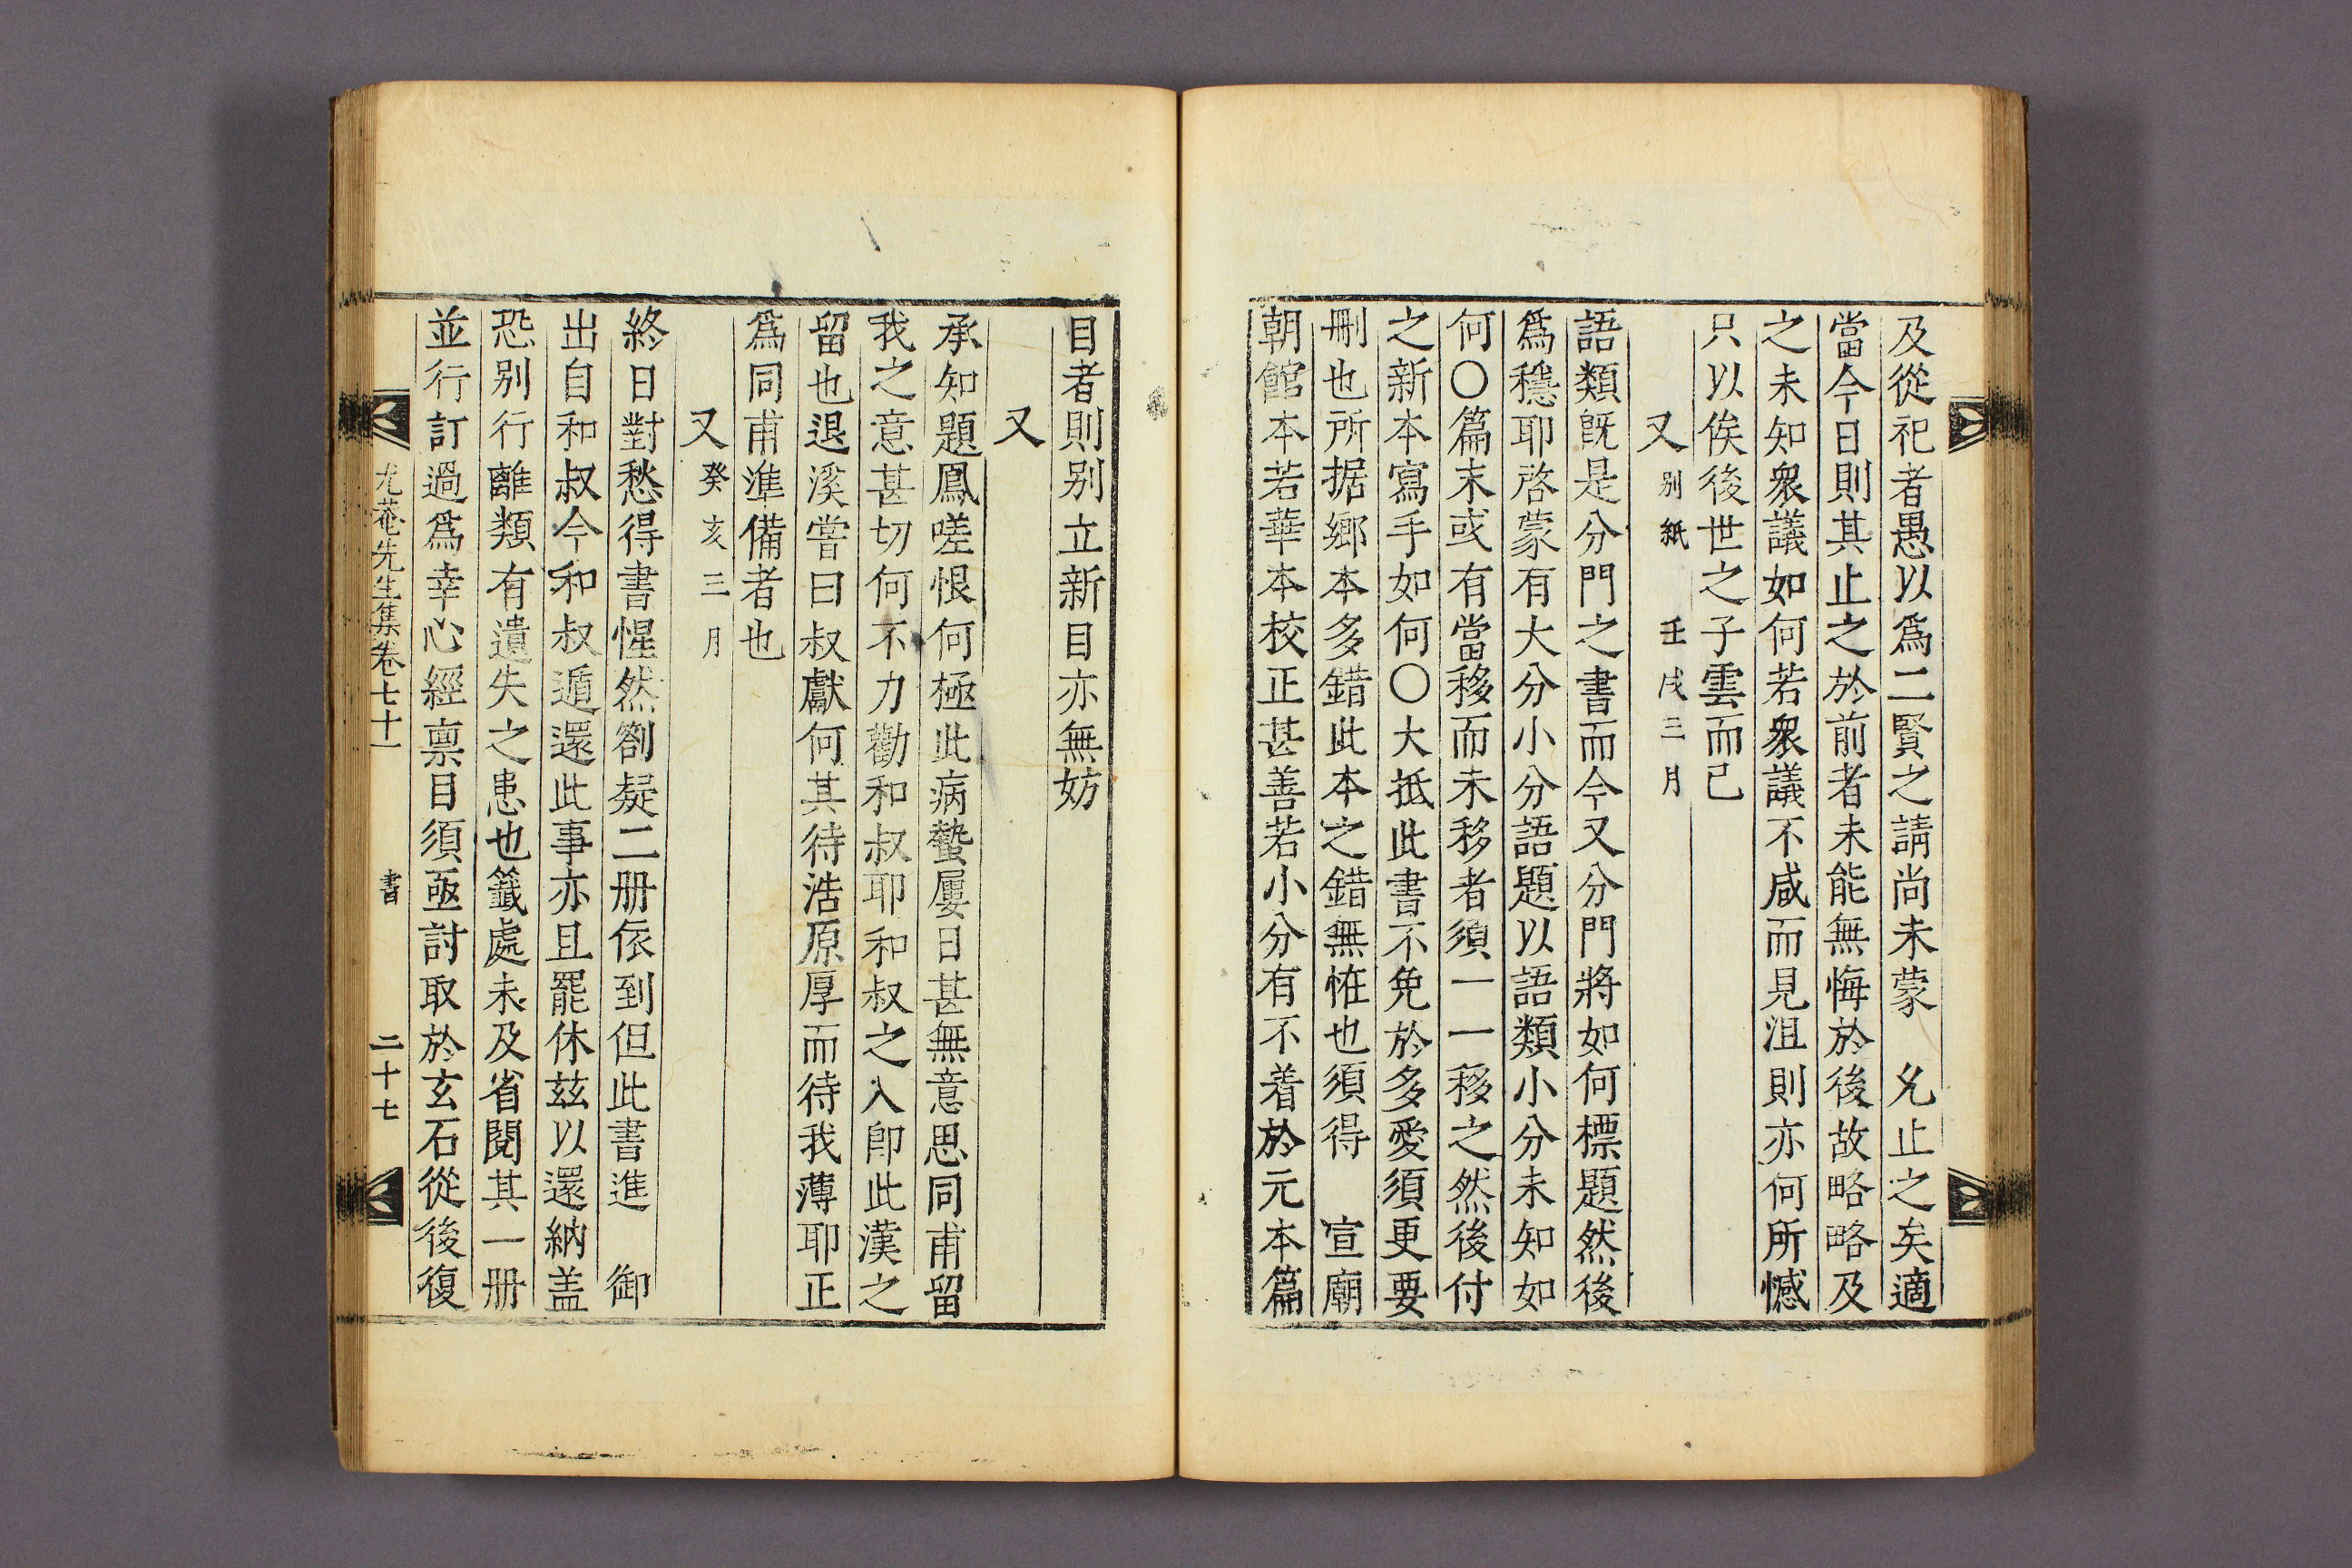 及從祀者愚以爲二賢之請尚未蒙　允止之矣適
當今日則其止之於前者未能無悔於後故略略及
之未知衆議如何若衆議不咸而見沮則亦何所憾
只以俟後世之子雲而已
又 別紙　壬戌三月
語類旣是分門之書而今又分門將如何標題然後
爲穩耶啓蒙有大分小分語題以語類小分未知如
何〇篇末或有當移而未移者須一一移之然後付
之新本寫手如何〇大抵此書不免於多愛須更要
刪也所据鄕本多錯此本之錯無恠也須得　宣廟
朝館本若華本校正甚善若小分有不着於元本篇
目者則別立新目亦無妨
又
承知題鳳嗟恨何極此病蟄屢日甚無意思同甫留
我之意甚切何不力勸和叔耶和叔之入卽此漢之
留也退溪嘗曰叔獻何其待浩原厚而待我薄耶正
爲同甫準備者也
又 癸亥三月
終日對愁得書惺然劄疑二册依到但此書進　御
出自和叔今和叔遁還此事亦且罷休玆以還納盖
恐別行離類有遺失之患也籤處未及省閱其一册
並行訂過爲幸心經禀目須亟討取於玄石從後復
尤菴先生集卷七十一　書　二十七